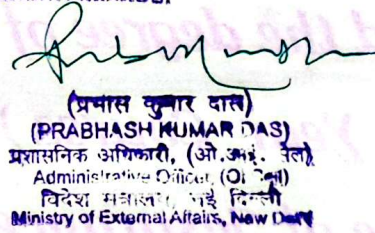 (प्रभास कुमार दास)
(PRABHASH KUMAR DAS)
प्रशासनिक अधिकारी, (ओ.आई. सेल)
Administrative Officer, (OI Cell)
विदेश मंत्रालय, नई दिल्ली
Ministry of External Affairs, New Delhi